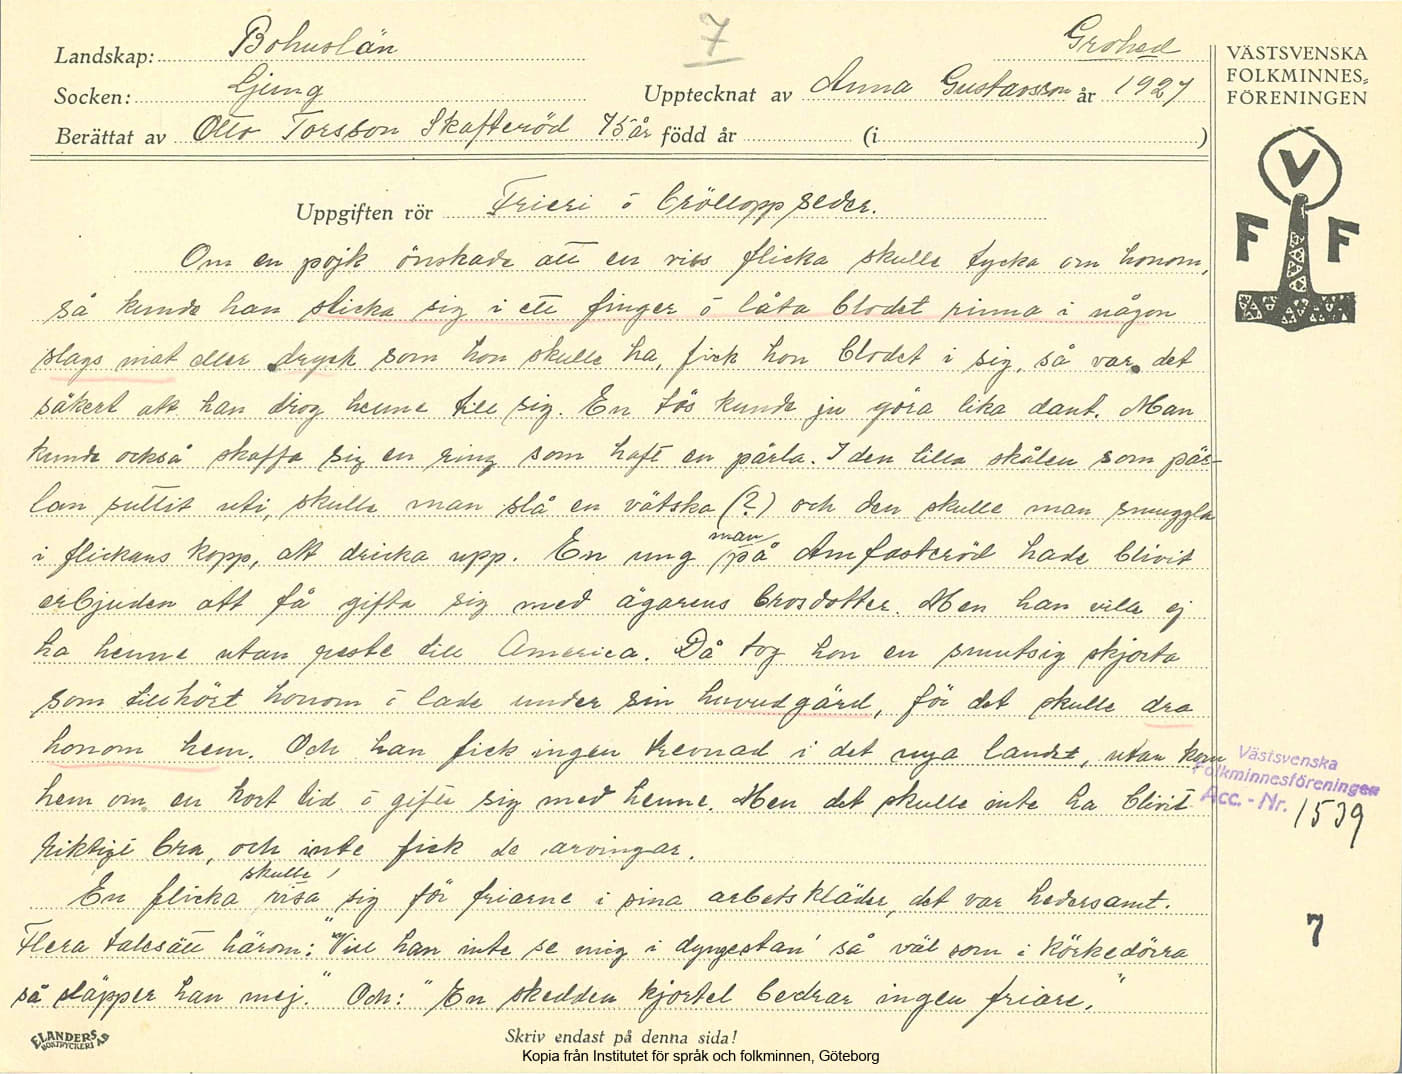 7
Grohed
Landskap: Bohuslän
Socken: Ljung
Upptecknat av Anna Gustavsson år 1927
Berättat av Otto Torsson Skafteröd 75 år född år (i )
VÄSTSVENSKA
FOLKMINNES-
FÖRENINGEN
V
F F
Uppgiften rör Frieri o bröllopp seder.
Om en pojk önskade att en viss flicka skulle tycka om honom,
så kunde han sticka sig i ett finger o låta blodet rinna i någon
slags mat eller dryck som hon skulle ha, fick hon blodet i sig, så var det
säkert att han drog henne till sig. En tös kunde ju göra lika dant. Man
kunde också skaffa sig en ring som haft en pärla. I den lilla skålen som pär-
lan suttit uti, skulle man slå en vätska (?) och den skulle man smuggla
i flickans kopp, att dricka upp. En ung man på Amfasteröd hade blivit
erbjuden att få gifta sig med ägarens brosdotter. Men han ville ej
ha henne utan reste till America. Då tog hon en smutsig skjorta
som tillhört honom o lade under sin huvudgärd, för det skulle dra
honom hem. Och han fick ingen trevnad i det nya landet, utan kom
hem om en kort tid o gifte sig med henne. Men det skulle inte ha blivit
riktigt bra, och inte fick de arvingar.
En flicka skulle visa sig för friarne i sina arbetskläder, det var hedersamt.
Flera talesätt härom: "Vill han inte se mig i dyngestan' så väl som i körkedörra
så släpper han mej." Och: "En skedden kjortel bedrar ingen friare."
Västsvenska
Folkminnesföreningen
Acc. - Nr. 1539
7
ELANDERS
BOKTRYCKERI AB
Skriv endast på denna sida!
Kopia från Institutet för språk och folkminnen, Göteborg